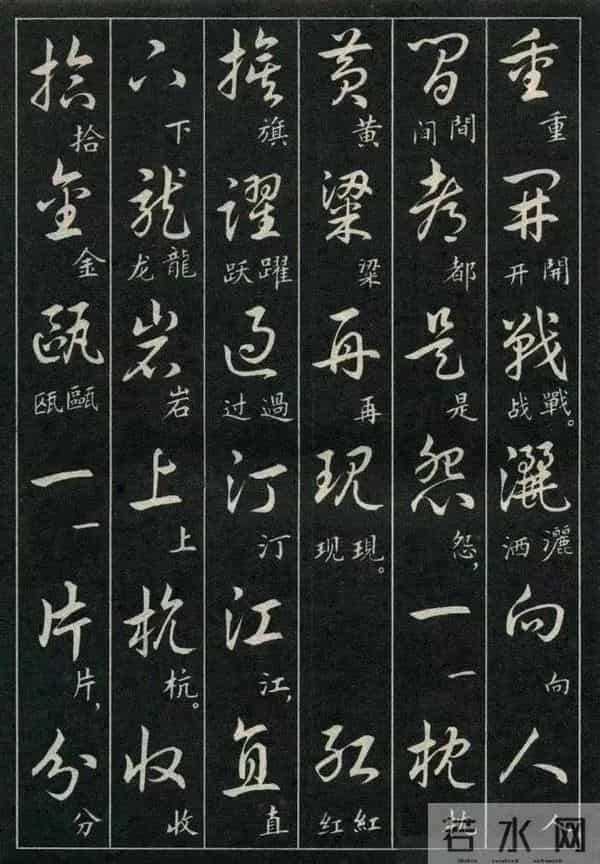 重開戰灑向人
重 開开 戰战。 灑洒 向 人
間都是怨一枕
間间 都 是 怨, 一 枕
黄粱再現紅
黄 粱 再 現现。 紅红
旗躍過汀江直
旗 躍跃 過过 汀 江, 直
下龍岩上杭收
下 龍龙 岩 上 杭。 收
拾金甌一片分
拾 金 甌瓯 一 片, 分
若水网